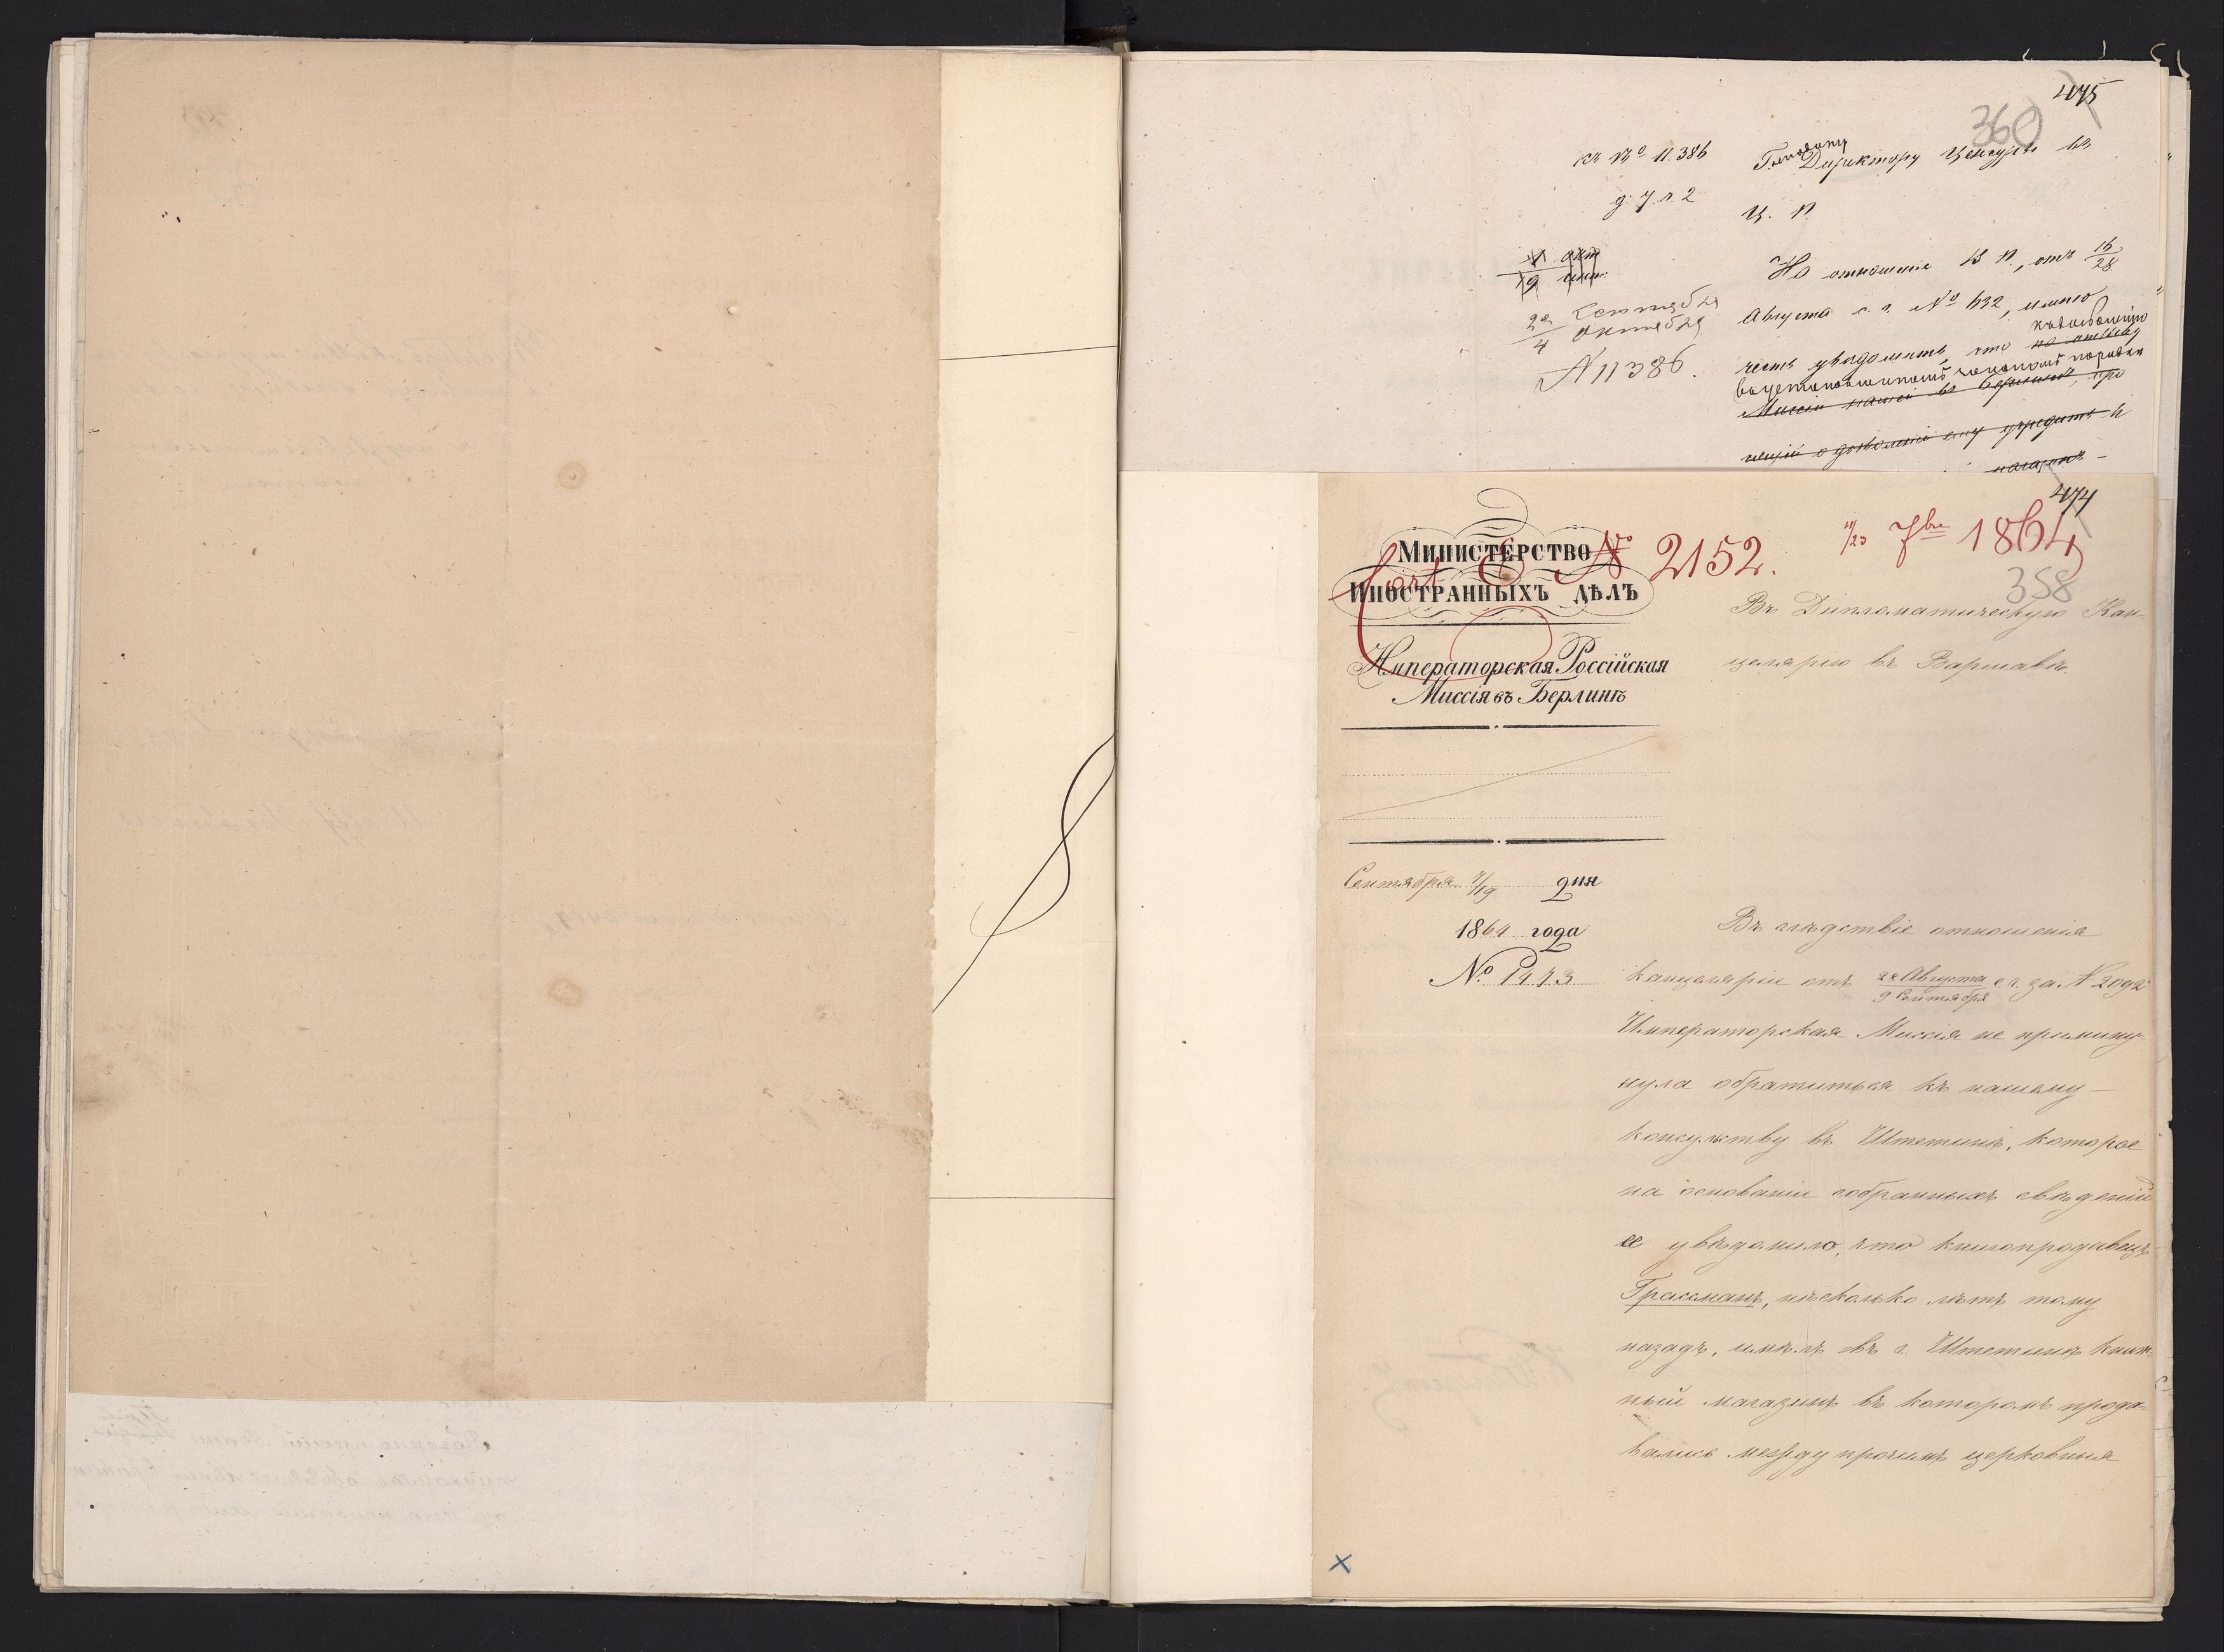 475
360
къ № 11.386
д. 7. л. 2
Господину
Г. Директору Цензуры въ
Ц. П.
11 окт
19 сент.
22 Сентября
4 Октября
N 11386.
На отношеніе В П., отъ 16/28
Августа с. г. № 632, имѣю
честь увѣдомить, что по отзыву
въ установленномъ закономъ порядкѣ
Миссіи нашей въ Берлинѣ, про
о дозволеніи ему учредить к
магазинъ
474
МИНИСТЕРСТВО
ИНОСТРАННЫХЪ ДѢЛЪ
№ 2152.
11/23 7bre 1864
358
Императорская Россійская
Миссія въ Берлинѣ
Въ Дипломатическую Кан-
целярію въ Варшавѣ.
Сентября 7/19 дня
1864 года
№ 1443
Въ слѣдствіе отношенія
Канцеляріи отъ 28 Августа/9 Сентября с. г. за N 2092
Императорская Миссія не примину-
нула обратиться къ нашему
консульству въ Штетинѣ, которое
на основаніи собранныхъ свѣденій
ее увѣдомило, что книгопродавецъ
Грассманъ, нѣсколько лѣтъ тому
назадъ, имѣлъ въ г. Штетинѣ книж-
ный магазинъ въ которомъ прода-
вались между прочимъ церковныя